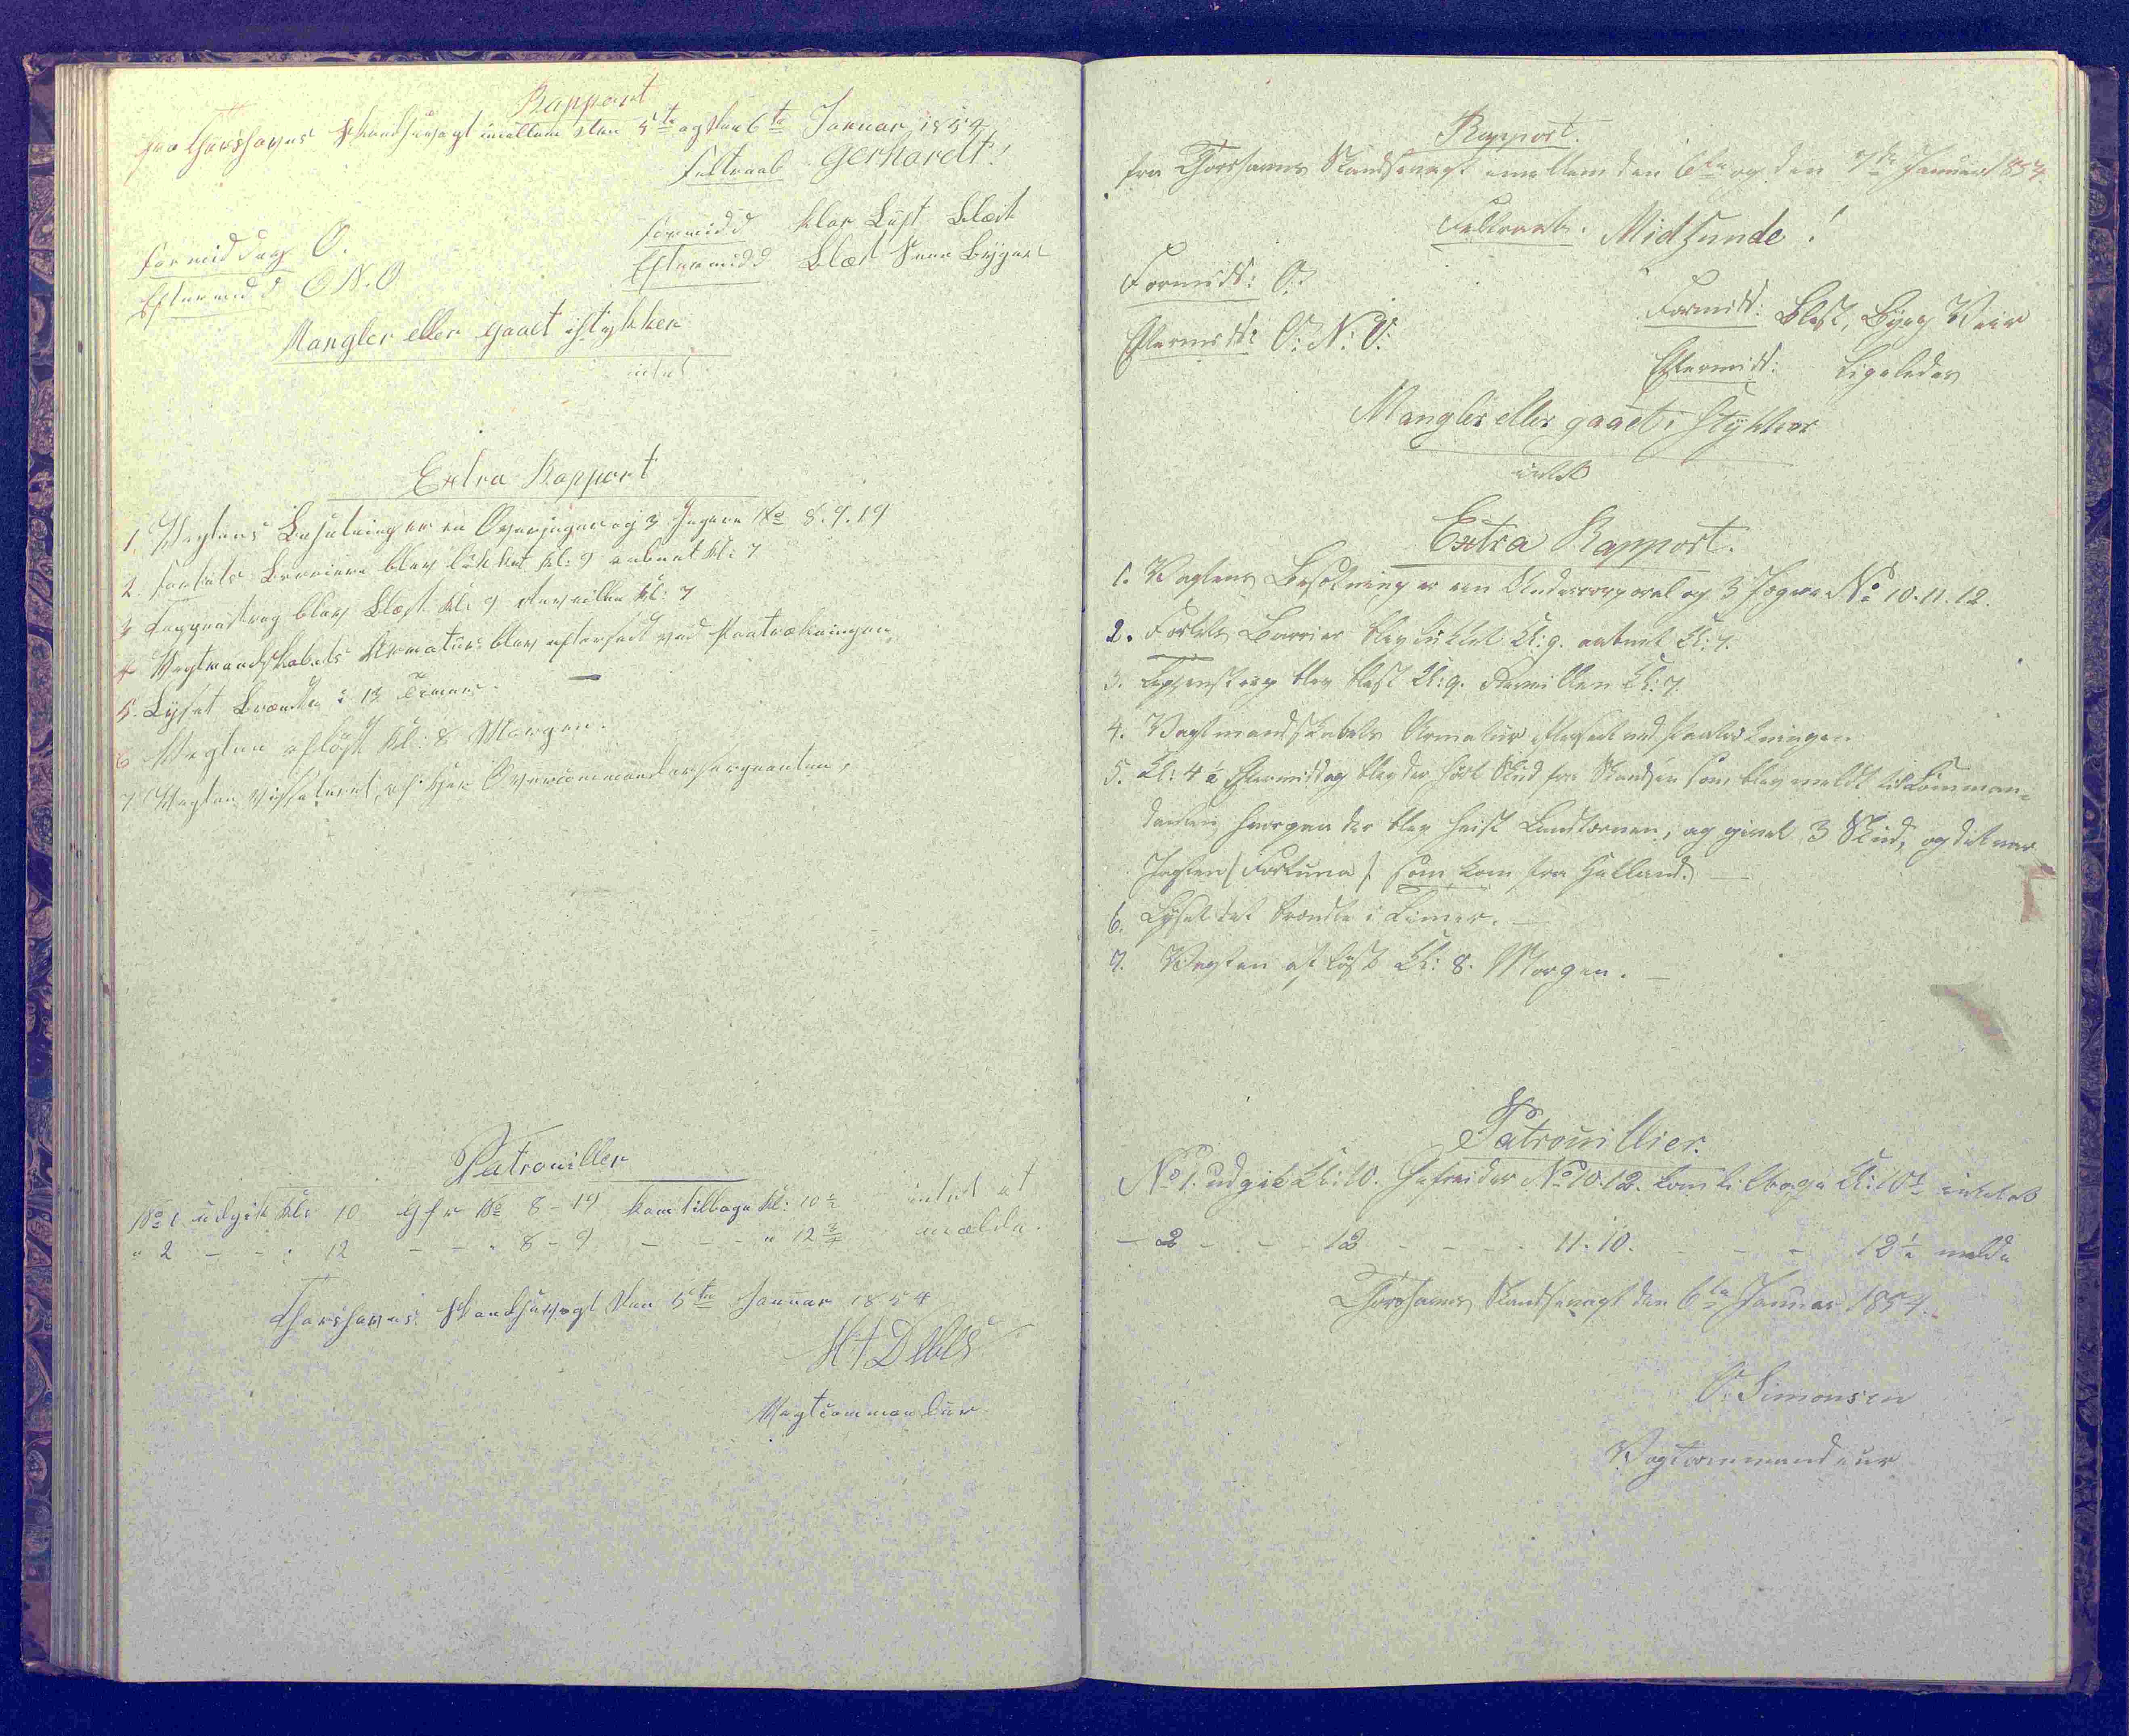 Rapport
fra Thorshavns Skandsevagt imellem den 5te og den 6te Januar 1854
Feltraab Gerhardt!
Formiddag O.
Eftermidd O N. O
Formidd klar Luft Blæst
Eftermidd Blæst Snee Byger
Mangler eller gaaet istykker
intet
Extra Rapport
1. Vagtens Besætning er en Overjæger og 3 Jægere No 8. 9. 19
2 Fortets Barriere blev lukket Kl: 9 aabnet Kl: 7
3 Tappenstreg blev Blæst Kl: 9 Revellien Kl: 7
4 Vagtmandskabets Armatur blev efterseet ved Paatrækningen
5. Lyset Brændte i 13 Timer.
6 Vagten afløst Kl: 8 Morgen.
7 Vagten Visiteret af Her Overcommandersergeanten,
Patrouiller
No 1 udgik Kl: 10 Gfr No 8 - 19 kom tilbage Kl: 10½ intet at
" 2 - - : 12 - - " 8 - 9 - - - " 12¾ melde.
Thorshavns Skandsevagt den 5te Januar 1854
Vagtcommandeur
Rapport.
fra Thorshavns Skandsevagt imellem den 6te og den 7de Januar 1854.
Feltraab. Midsunde!
Formidd: O:
Eftermidd: O: N: O:
Formidd: Blæst, Byg Veir
Eftermidd: Ligeledes
Mangler eller gaaet i Stykker
intet
Extra Rapport.
1. Vagtens Besætning er een Undercorporal og 3 Jægere No 10. 11. 12.
2. Fortets Barrier blev lukket Kl: 9. aabnet Kl: 7.
3. Tappenstreg blev blæst Kl: 9. Revellien Kl: 7.
4. Vagtmandskabets Armatur efterseet ved Paatrækningen
5. Kl: 4½ Eftermiddag blev der hørt Skud fra Skandsen som blev meldt til Comman=
danten hvorpaa der blev heist Landternen, og givet 3 Skud, og det var
Jagten (Fortuna) som kom fra Hetland.
6. Lyset det brændte i Timer.
7. Vagten afløst Kl: 8. Morgen.
Patrouillier.
No 1. udgik Kl: 10. Gefreider No 10. 12. kom tilbage Kl: 10½ intet at
- 2 - - - 12 - - - - 11. 10. - - - 12½ melde
Thorshavns Skandsevagt den 6te Januar 1854.
O. Simonsen
Vagtcommandeur